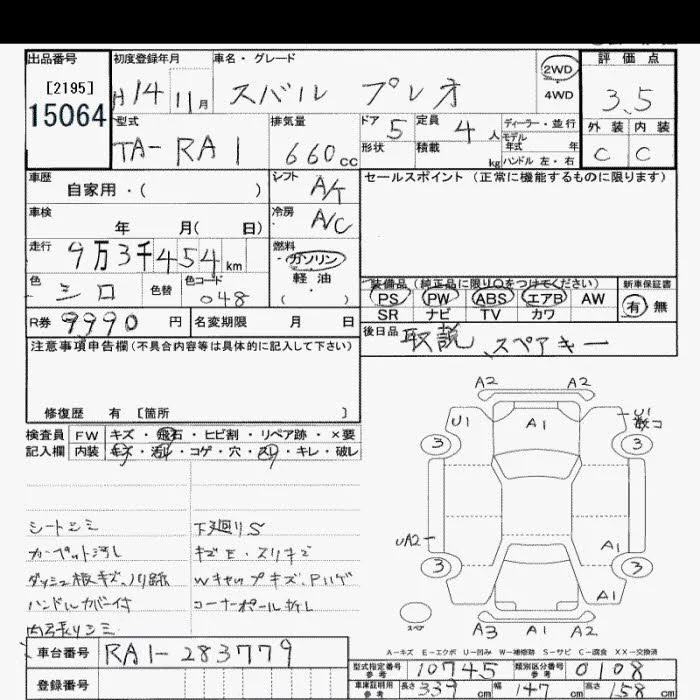 出品番号 初度登録年月 車名・グレード 2WD 評価点
[2195] H14 11月 スバル プレオ 4WD 3.5
15064 型式 排気量 ドア 5 定員 4人 ディーラー・並行 外装 内装
TA-RA1 660cc 形状 積載 kg モデル年式 年 ハンドル 左・右 C C
車歴 自家用・( ) シフト A/T セールスポイント(正常に機能するものに限ります)
車検 年 月( 日) 冷房 A/C
走行 9万3千454km 燃料 ガソリン
軽油 装備品(純正品に限り○をつけてください) 新車保証書
色 シロ 色替 色コード 048 ・( ) PS PW ABS エアB AW 有 無
R券 9990円 名変期限 月 日 SR ナビ TV カワ
注意事項申告欄(不具合内容等は具体的に記入して下さい) 後日品 取説、スペアキー
修復歴 有 [箇所 ]
検査員 FW キズ・飛石・ヒビ割・リペア跡・×要
記入欄 内装 キズ・汚れ・コゲ・穴・スレ・キレ・破レ
シートシミ 下廻りS
カーペット汚レ キズE・スリキズ
ダッシュ板キズ、ノリ跡 Wキャップキズ、Pハゲ
ハンドルカバー付 コーナーポール折レ
内天張りシミ
A2 A2
U1 A1 U1
3 3
UA2 A1
3 3
A1
スペア A3 A1 A2
A-キズ E-エクボ U-凹み W-補修跡 S-サビ C-腐食 XX-交換済
車台番号 RA1-283779 型式指定番号 参考 10745 類別区分番号 参考 0108
登録番号 車庫証明用 参考 長さ 339cm 幅 147cm 高さ 158cm